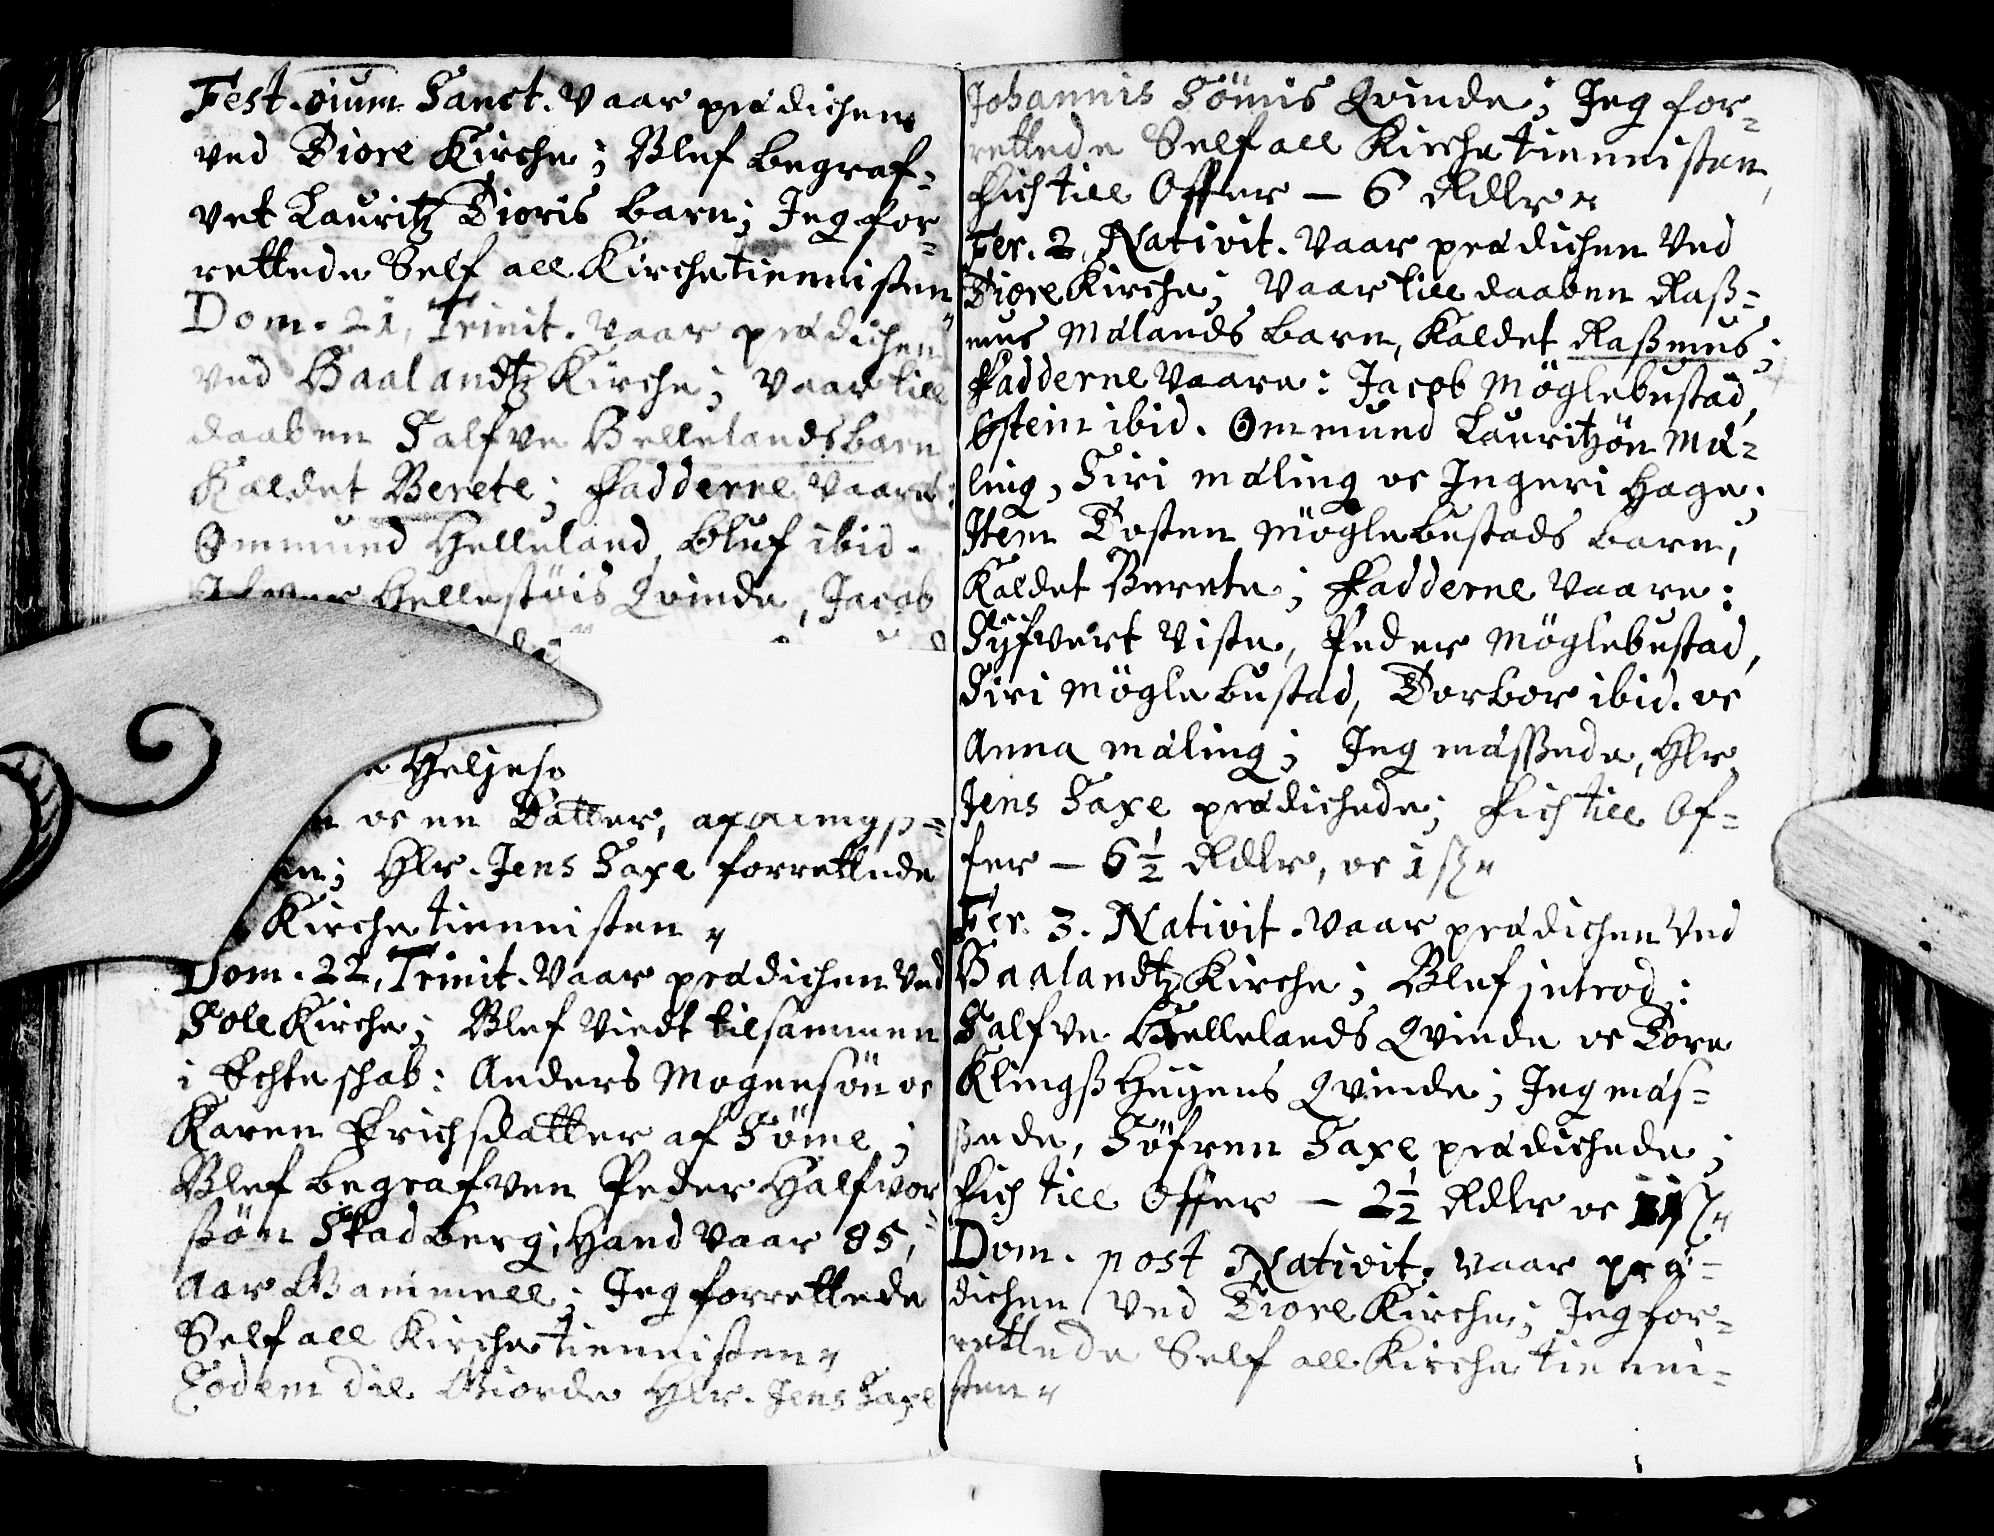 Fest. oium Sanct. Vaar prædichen
ved Tiore Kirche; Blef begraf-
vet Lauritz Tioris barn; Jeg for-
rettede Self all Kirche tiennisten
Dom. 21, Trinit. Vaar prædichen
ved Haalandtz Kirche; Vaar till
daaben Salfve Hellelands barn
Kaldet Berete; Fadderne Vaare:
Ommund Helleland, Oluf ibid.
Hellestöis Qvinde, Jacob
Heljesø
oc en Datter,
Hlr. Jens Saxe forrettede
Kirche tiennisten
Dom. 22, Trinit. Vaar prædichen Ved
Sole Kirche; Blef Viedt tilsammen
i Echte schab: Anders Mogensön oc
Karen Erichsdatter af Söme;
Blef begrafven Peder Halfvor
ssön Skadberg; Hand Vaar 85,
Aar Gammell; Jeg forrettede
Self all Kirche tiennisten
Eodem die Giorde Hlr. Jens Saxe
Johannis Sömis Qvinde; Jeg for-
rettede Self all Kirche tiennisten,
Fich till Offer — 6 Rdlr
Fer. 2, Nativit. Vaar prædichen Ved
Tiore Kirche; Vaar till daaben Rass-
mus Mælands barn, Kaldet Rassmus;
Fadderne Vaare: Jacob Möglebustad,
Østein ibid. Ommund Lauritzön Mæ-
ling, Siri Mæling oc Ingeri Hage;
Item Tosten Möglebustads barn,
Kaldet Berete; Fadderne Vaare:
Syfvert Viste, Peder Möglebustad,
Siri Möglebustad, Torbor ibid. oc
Anna Mæling; Jeg mæssede, Hlr
Jens Saxe prædichede; Fich till Of-
fer — 6½ Rdlr, oc 1 ß
Fer. 3. Nativit. Vaar prædichen Ved
Haalandtz Kirche; Blef introd:
Salfve Hellelands Qvinde oc Tore
Klingss Heyens Qvinde; Jeg mæs-
sede, Söfren Saxe prædichede;
Fich till Offer — 2½ Rdlr oc
Dom. post Nativit. Vaar præ-
dichen Ved Tiore Kirche; Jeg for-
rettede Self all Kirche tienni-
sten